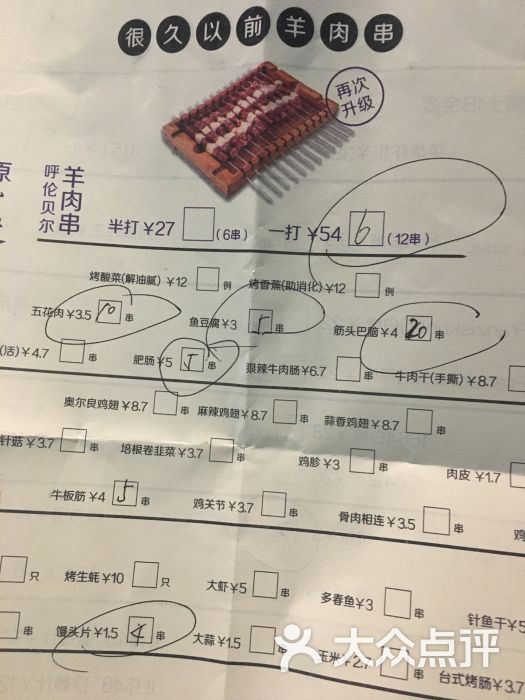 很久以前羊肉串
再次
升级
呼伦贝尔
羊肉串
半打¥27 (6串) 一打¥54 6 (12串)
烤酸菜(解油腻)¥12 例 烤香蕉(助消化)¥12 例
五花肉¥3.5 10 串 鱼豆腐¥3 5 串 筋头巴脑¥4 20 串
(活)¥4.7 串 肥肠¥5 5 串 狠辣牛肉肠¥6.7 串 牛肉干(手撕)¥8.7
奥尔良鸡翅¥8.7 串 麻辣鸡翅¥8.7 串 蒜香鸡翅¥8.7 串
针菇¥3.7 串 培根卷韭菜¥3.7 串 鸡胗¥3 串 肉皮¥1.7
牛板筋¥4 5 串 鸡关节¥3.7 串 骨肉相连¥3.5 串 鸡
只 烤生蚝¥10 只 大虾¥5 串 多春鱼¥3 串 针鱼干¥5
串 馒头片¥1.5 4 串 大蒜¥1.5 串 玉米¥2.7 串 台式烤肠¥3.7
大众点评